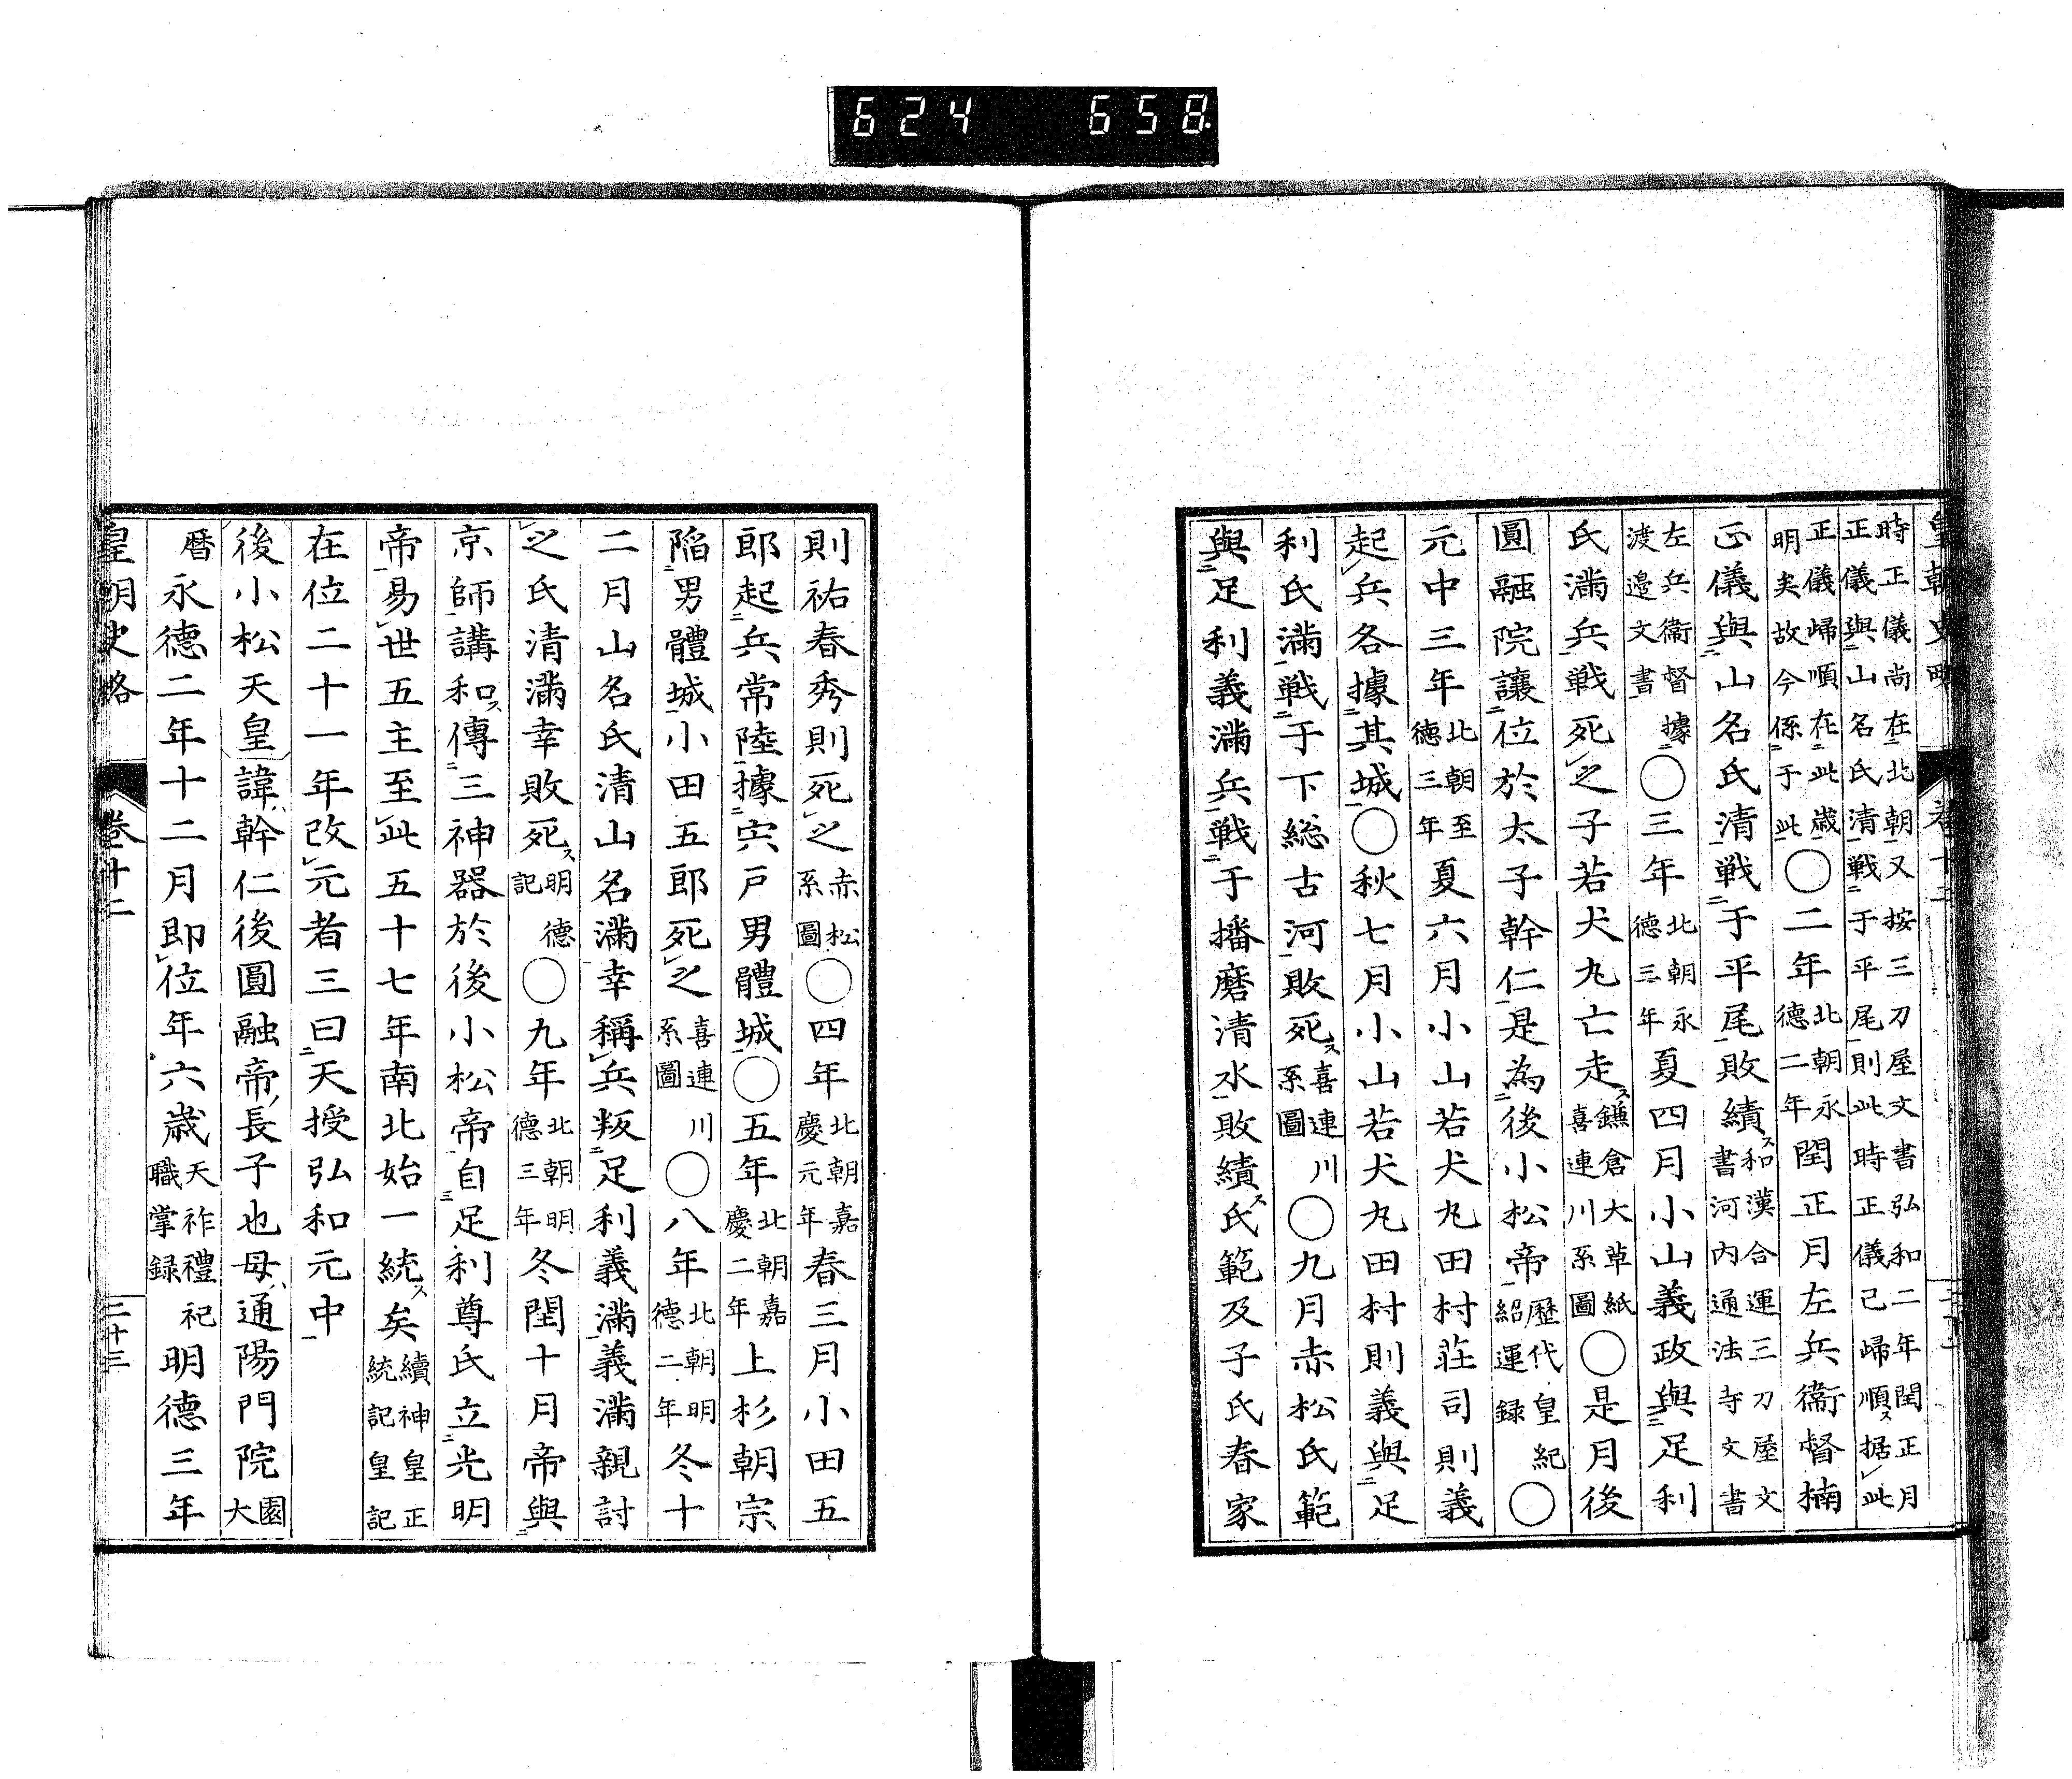 皇朝史略　卷十二
時正儀尚在北朝又按三刀屋文書弘和二年閏正月
正儀與山名氏清戰于平尾則此時正儀已歸順据此
正儀歸順在此歲明矣故今係于此〇二年北朝永德二年閏正月左兵衞督楠
正儀與山名氏清戰于平尾敗績和漢合運三刀屋文書河内通法寺文書
左兵衞督據渡邉文書〇三年北朝永德三年夏四月小山義政與足利
氏滿兵戰死之子若犬丸亡走鎌倉大草紙喜連川系圖〇是月後
圓融院讓位於太子幹仁是為後小松帝歷代皇紀紹運録〇
元中三年北朝至德三年夏六月小山若犬丸田村莊司則義
起兵各據其城〇秋七月小山若犬丸田村則義與足
利氏滿戰于下総古河敗死喜連川系圖〇九月赤松氏範
與足利義滿兵戰于播磨清水敗績氏範及子氏春家
則祐春秀則死之赤松系圖〇四年北朝嘉慶元年春三月小田五
郎起兵常陸據宍戸男體城〇五年北朝嘉慶二年上杉朝宗
陷男體城小田五郎死之喜連川系圖〇八年北朝明德二年冬十
二月山名氏清山名滿幸稱兵叛足利義滿義滿親討
之氏清滿幸敗死明德記〇九年北朝明德三年冬閏十月帝與
京師講和傳三神器於後小松帝自足利尊氏立光明
帝易世五主至此五十七年南北始一統矣續神皇正統記皇記
在位二十一年改元者三曰天授弘和元中
後小松天皇諱幹仁後圓融帝長子也母通陽門院園大
曆永德二年十二月即位年六歲天祚禮祀職掌録明德三年
皇朝史略　卷十二　二十三